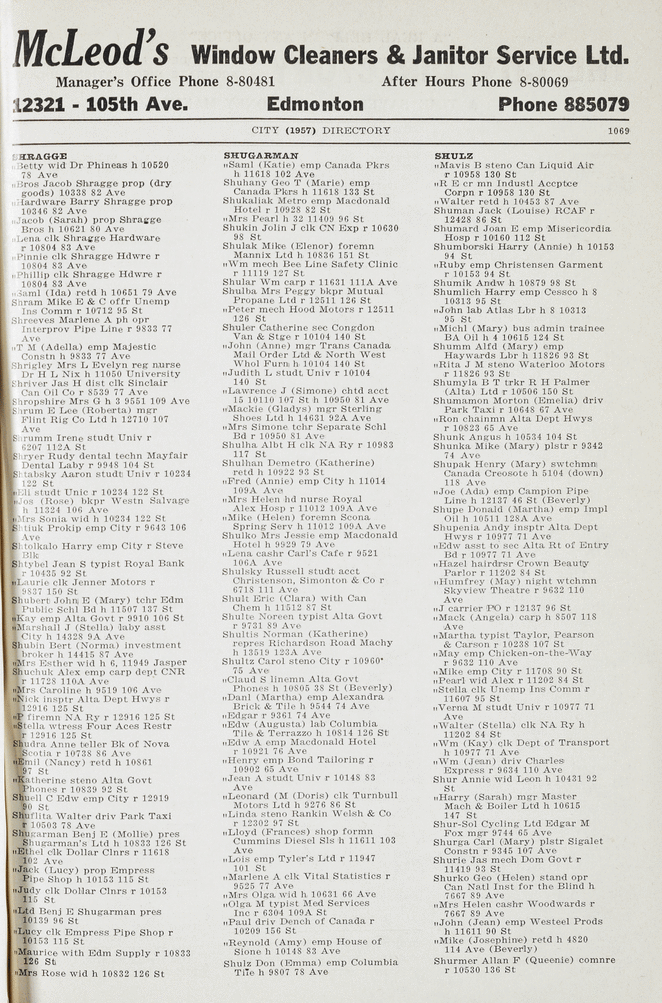 McLeod's Window Cleaners & Janitor Service Ltd.
Manager's Office Phone 8-80481 After Hours Phone 8-80069
12321 - 105th Ave. Edmonton Phone 885079
CITY (1957) DIRECTORY 1069
SHRAGGE
"Betty wid Dr Phineas h 10520
78 Ave
"Bros Jacob Shragge prop (dry
goods) 10338 82 Ave
"Hardware Barry Shragge prop
10346 82 Ave
"Jacob (Sarah) prop Shragge
Bros h 10621 80 Ave
"Lena clk Shragge Hardware
r 10804 83 Ave
"Pinnie clk Shragge Hdwre r
10804 83 Ave
"Phillip clk Shragge Hdwre r
10804 83 Ave
"Saml (Ida) retd h 10651 79 Ave
Shram Mike E & C offr Unemp
Ins Comm r 10712 95 St
Shreeves Marlene A ph opr
Interprov Pipe Line r 9833 77
Ave
"T M (Adella) emp Majestic
Constn h 9833 77 Ave
Shrigley Mrs L Evelyn reg nurse
Dr H L Nix h 11050 University
Shriver Jas H dist clk Sinclair
Can Oil Co r 8539 77 Ave
Shropshire Mrs G h 3 9551 109 Ave
Shrum E Lee (Roberta) mgr
Flint Rig Co Ltd h 12710 107
Ave
Shrumm Irene studt Univ r
6207 112A St
Shryer Rudy dental techn Mayfair
Dental Laby r 9948 104 St
Shtabsky Aaron studt Univ r 10234
122 St
"Eli studt Unic r 10234 122 St
"Jos (Rose) bkpr Westn Salvage
h 11324 106 Ave
"Mrs Sonia wid h 10234 122 St
Shtiuk Prokip emp City r 9643 106
Ave
Shtolkalo Harry emp City r Steve
Blk
Shtybel Jean S typist Royal Bank
r 10435 92 St
"Laurie clk Jenner Motors r
9837 150 St
Shubert John E (Mary) tchr Edm
Public Schl Bd h 11507 137 St
"Kay emp Alta Govt r 9910 106 St
"Marshall J (Stella) laby asst
City h 14328 9A Ave
Shubin Bert (Norma) investment
broker h 14415 87 Ave
"Mrs Esther wid h 6, 11949 Jasper
Shuchuk Alex emp carp dept CNR
r 11728 110A Ave
"Mrs Caroline h 9519 106 Ave
"Nick insptr Alta Dept Hwys r
12916 125 St
"P firemn NA Ry r 12916 125 St
"Stella wtress Four Aces Restr
r 12916 125 St
Shudra Anne teller Bk of Nova
Scotia r 10738 86 Ave
"Emil (Nancy) retd h 10861
97 St
"Katherine steno Alta Govt
Phones r 10839 92 St
Shuell C Edw emp City r 12919
90 St
Shuflita Walter driv Park Taxi
r 10503 78 Ave
Shugarman Benj E (Mollie) pres
Shugarman's Ltd h 10833 126 St
"Ethel clk Dollar Clnrs r 11618
102 Ave
"Jack (Lucy) prop Empress
Pipe Shop h 10153 115 St
"Judy clk Dollar Clnrs r 10153
115 St
"Ltd Benj E Shugarman pres
10139 96 St
"Lucy clk Empress Pipe Shop r
10153 115 St
"Maurice with Edm Supply r 10833
126 St
"Mrs Rose wid h 10832 126 St
SHUGARMAN
"Saml (Katie) emp Canada Pkrs
h 11618 102 Ave
Shuhany Geo T (Marie) emp
Canada Pkrs h 11618 133 St
Shukaliak Metro emp Macdonald
Hotel r 10928 82 St
"Mrs Pearl h 32 11409 96 St
Shukin Jolin J clk CN Exp r 10630
98 St
Shulak Mike (Elenor) foremn
Mannix Ltd h 10836 151 St
"Wm mech Bee Line Safety Clinic
r 11119 127 St
Shular Wm carp r 11631 111A Ave
Shulba Mrs Peggy bkpr Mutual
Propane Ltd r 12511 126 St
"Peter mech Hood Motors r 12511
126 St
Shuler Catherine sec Congdon
Van & Stge r 10104 140 St
"John (Anne) mgr Trans Canada
Mail Order Ltd & North West
Whol Furn h 10104 140 St
"Judith L studt Univ r 10104
140 St
"Lawrence J (Simone) chtd acct
15 10110 107 St h 10950 81 Ave
"Mackie (Gladys) mgr Sterling
Shoes Ltd h 14631 92A Ave
"Mrs Simone tchr Separate Schl
Bd r 10950 81 Ave
Shulha Albt H clk NA Ry r 10983
117 St
Shulhan Demetro (Katherine)
retd h 10922 93 St
"Fred (Annie) emp City h 11014
109A Ave
"Mrs Helen hd nurse Royal
Alex Hosp r 11012 109A Ave
"Mike (Helen) foremn Scona
Spring Serv h 11012 109A Ave
Shulko Mrs Jessie emp Macdonald
Hotel h 9929 79 Ave
"Lena cashr Carl's Cafe r 9521
106A Ave
Shulsky Russell studt acct
Christenson, Simonton & Co r
6718 111 Ave
Shult Eric (Clara) with Can
Chem h 11512 87 St
Shulte Noreen typist Alta Govt
r 9731 89 Ave
Shultis Norman (Katherine)
repres Richardson Road Machy
h 13519 123A Ave
Shultz Carol steno City r 10960
75 Ave
"Claud S linemn Alta Govt
Phones h 10805 38 St (Beverly)
"Danl (Martha) emp Alexandra
Brick & Tile h 9544 74 Ave
"Edgar r 9361 74 Ave
"Edw (Augusta) lab Columbia
Tile & Terrazzo h 10814 126 St
"Edw A emp Macdonald Hotel
r 10921 76 Ave
"Henry emp Bond Tailoring r
10902 65 Ave
"Jean A studt Univ r 10148 83
Ave
"Leonard (M (Doris) clk Turnbull
Motors Ltd h 9276 86 St
"Linda steno Rankin Welsh & Co
r 12302 97 St
"Lloyd (Frances) shop formn
Cummins Diesel Sls h 11611 103
Ave
"Lois emp Tyler's Ltd r 11947
101 St
"Marlene A clk Vital Statistics r
9525 77 Ave
"Mrs Olga wid h 10631 66 Ave
"Olga M typist Med Services
Inc r 6304 109A St
"Paul driv Dench of Canada r
10209 156 St
"Reynold (Amy) emp House of
Sione h 10148 83 Ave
Shulz Don (Emma) emp Columbia
Tile h 9807 78 Ave
SHULZ
"Mavis B steno Can Liquid Air
r 10958 130 St
"R E cr mn Industl Accptce
Corpn r 10958 130 St
"Walter retd h 10453 87 Ave
Shuman Jack (Louise) RCAF r
12428 86 St
Shumard Joan E emp Misericordia
Hosp r 10160 112 St
Shumborski Harry (Annie) h 10153
94 St
"Ruby emp Christensen Garment
r 10153 94 St
Shumik Andw h 10879 98 St
Shumlich Harry emp Cessco h 8
10313 95 St
"John lab Atlas Lbr h 8 10313
95 St
"Michl (Mary) bus admin trainee
BA Oil h 4 10615 124 St
Shumn Alfd (Mary) emp
Haywards Lbr h 11826 93 St
"Rita J M steno Waterloo Motors
r 11826 93 St
Shumyla B T trkr R H Palmer
(Alta) Ltd r 10506 150 St
Shumamon Morton (Emelia) driv
Park Taxi r 10648 67 Ave
"Ron chainmn Alta Dept Hwys
r 10823 65 Ave
Shunk Angus h 10534 104 St
Shunka Mike (Mary) plstr r 9342
74 Ave
Shupak Henry (Mary) swtchmn
Canada Creosote h 5104 (down)
118 Ave
"Joe (Ada) emp Campion Pipe
Line h 12137 46 St (Beverly)
Shupe Donald (Martha) emp Impl
Oil h 10511 128A Ave
Shupenia Andy insptr Alta Dept
Hwys r 10977 71 Ave
"Edw asst to sec Alta Rt of Entry
Bd r 10977 71 Ave
"Hazel hairdrsr Crown Beauty
Parlor r 11202 84 St
"Humfrey (May) night wtchmn
Skyview Theatre r 9632 110
Ave
"J carrier PO r 12137 96 St
"Mack (Angela) carp h 8507 118
Ave
"Martha typist Taylor, Pearson
& Carson r 10238 107 St
"May emp Chicken-on-the-Way
r 9632 110 Ave
"Mike emp City r 11708 90 St
"Pearl wid Alex r 11202 84 St
"Stella clk Unemp Ins Comm r
11607 95 St
"Verna M studt Univ r 10977 71
Ave
"Walter (Stella) clk NA Ry h
11202 84 St
"Wm (Kay) clk Dept of Transport
h 10977 71 Ave
"Wm (Jean) driv Charles
Express r 9634 110 Ave
Shur Annie wid Leon h 10431 92
St
"Harry (Sarah) mgr Master
Mach & Boiler Ltd h 10615
147 St
Shur-Sol Cycling Ltd Edgar M
Fox mgr 9744 65 Ave
Shurga Carl (Mary) plstr Sigalet
Constn r 9345 107 Ave
Shurie Jas mech Dom Govt r
11419 93 St
Shurko Geo (Helen) stand opr
Can Natl Inst for the Blind h
7667 89 Ave
"Mrs Helen cashr Woodwards r
7667 89 Ave
"John (Jean) emp Westeel Prods
h 11611 90 St
"Mike (Josephine) retd h 4820
114 Ave (Beverly)
Shurmer Allan F (Queenie) comnre
r 10530 136 St